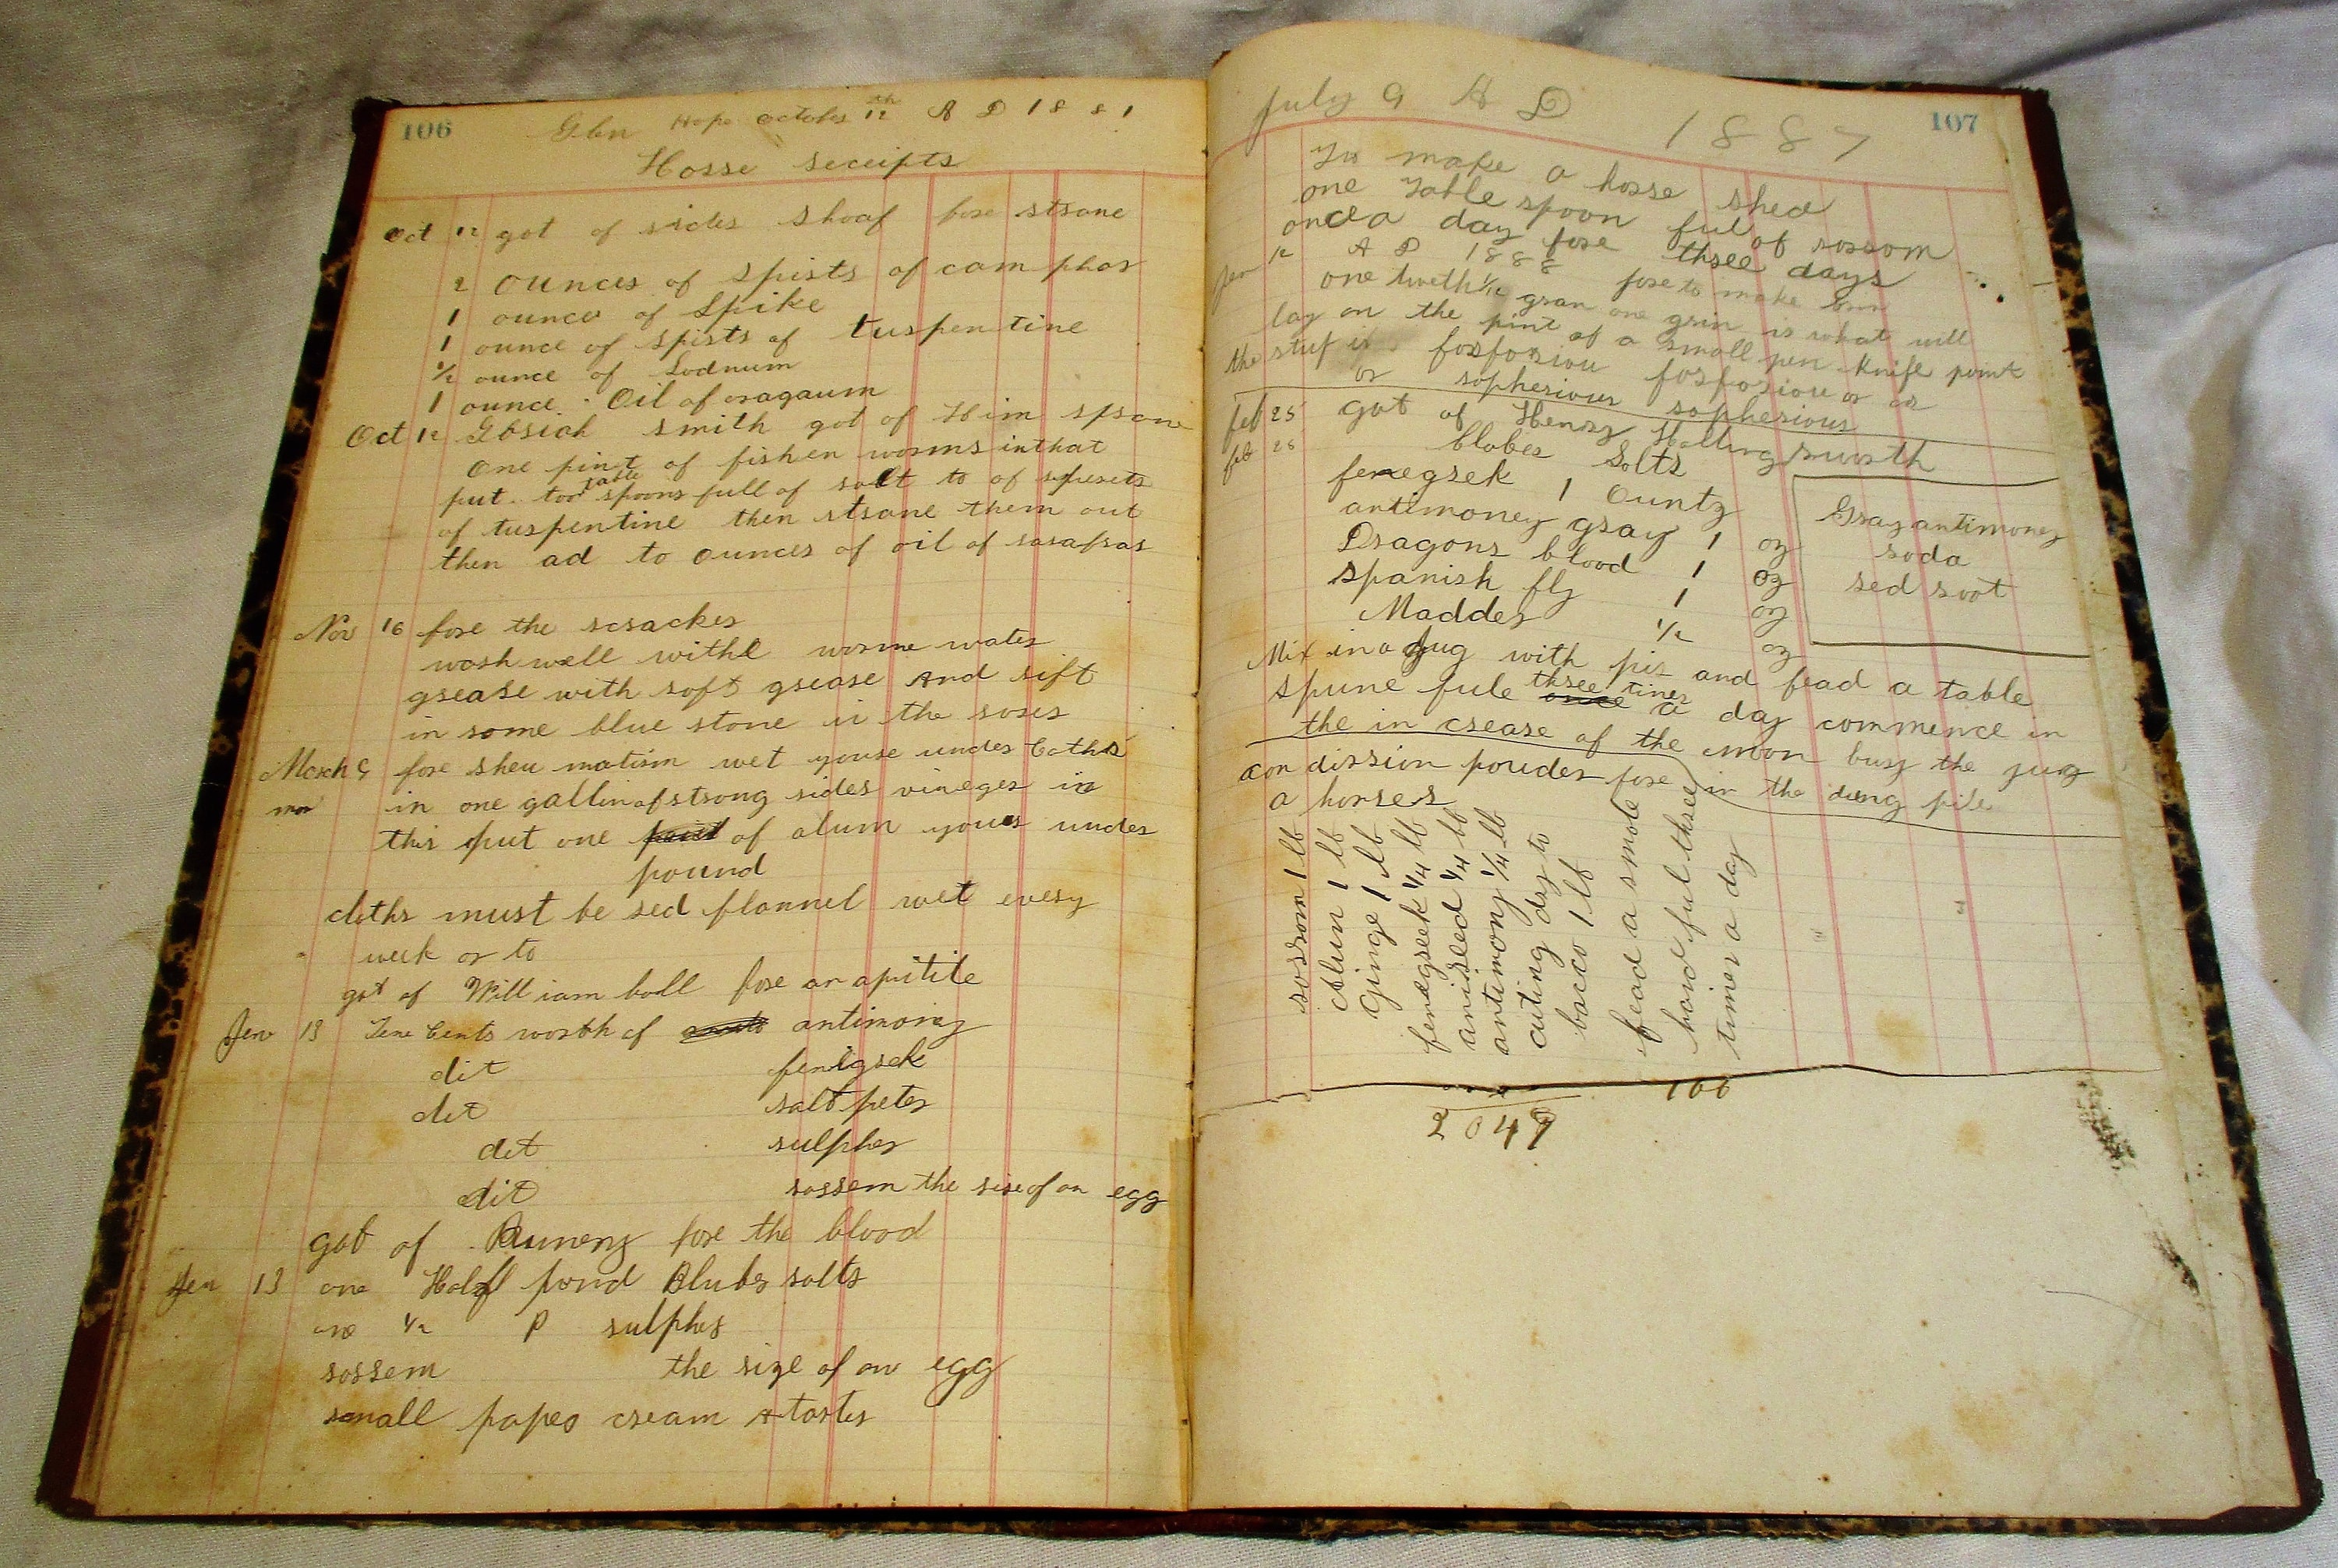 106
Glen Hope october 12th A D 1881
Horse receipts
Oct 12 got of rider shoaf fore strane
2 ounces of spirts of cam phor
1 ounce of spike
1 ounce of spirts of turpentine
1/2 ounce of Lodnum
1 ounce Oil of oragaum
Oct 12 smith got of Him sprane
one pint of fishen worms in that
put too table spoons full of salt to of spirets
of turpentine then strane them out
then ad to ounces of oil of sasafras
Nov 16 fore the scrackes
wash well withe worme water
grease with soft grease and sift
in some blue stone in the sores
March 9 fore rheu matism wet youre under Coths
mar in one gallin of strong sider vineger in
this put one paint of alum youer under
pound
cloths must be red flannel wet every
week or to
got of William ball fore an apitite
Jen 13 Tene Cents worth of antimony
dit fenigrek
dit salt peter
dit sulpher
dit rossem the sise of an egg
got of fore the blood
Jen 13 one Half pond Gluber salts
one 1/2 P sulpher
rossem the size of an egg
small paper cream A tarter
107
July 9 A D 1887
To make a horse shed
one Table spoon ful of rossom
once a day fore three days
Jen 12 A D 1888 fore to make
one twelth 1/12 gran one grin is what will
lay on the pint of a small pen knife point
the stuf is fosforiou fosforiou or
or sopherious sopherious
feb 25 got of Henry Hollingsworth
feb 25 Globes Solts
fenegrek 1 ountz
antimoney gray 1 oz
Dragons blood 1 oz
spanish fly 1 oz
Madder 1/2 oz
Gray antimoney
soda
red root
Mix in a Jug with pis and fead a table
spune fule once three times a day commence in
the in crease of the moon bury the jug
in the dung pile
con dission pouder fore
a horses
rossom 1 lb
Alum 1 lb
Ginge 1 lb
fenegreek 1/4 lb
aniseed 1/4 lb
antimony 1/4 lb
cuting dry to
bacco 1 lb
fead a smole
hand ful three
times a day
2047
100